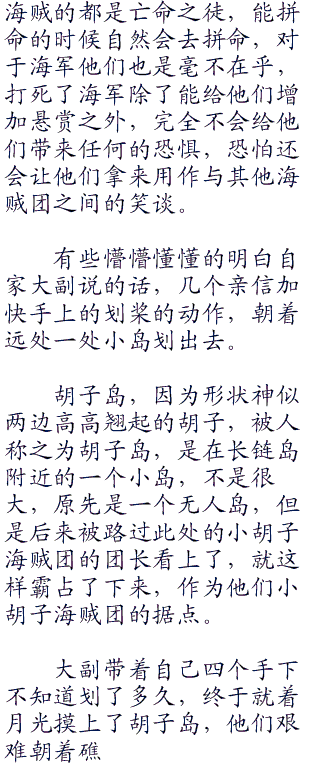 海贼的都是亡命之徒，能拼
命的时候自然会去拼命，对
于海军他们也是毫不在乎，
打死了海军除了能给他们增
加悬赏之外，完全不会给他
们带来任何的恐惧，恐怕还
会让他们拿来用作与其他海
贼团之间的笑谈。
有些懵懵懂懂的明白自
家大副说的话，几个亲信加
快手上的划桨的动作，朝着
远处一处小岛划出去。
胡子岛，因为形状神似
两边高高翘起的胡子，被人
称之为胡子岛，是在长链岛
附近的一个小岛，不是很
大，原先是一个无人岛，但
是后来被路过此处的小胡子
海贼团的团长看上了，就这
样霸占了下来，作为他们小
胡子海贼团的据点。
大副带着自己四个手下
不知道划了多久，终于就着
月光摸上了胡子岛，他们艰
难朝着礁